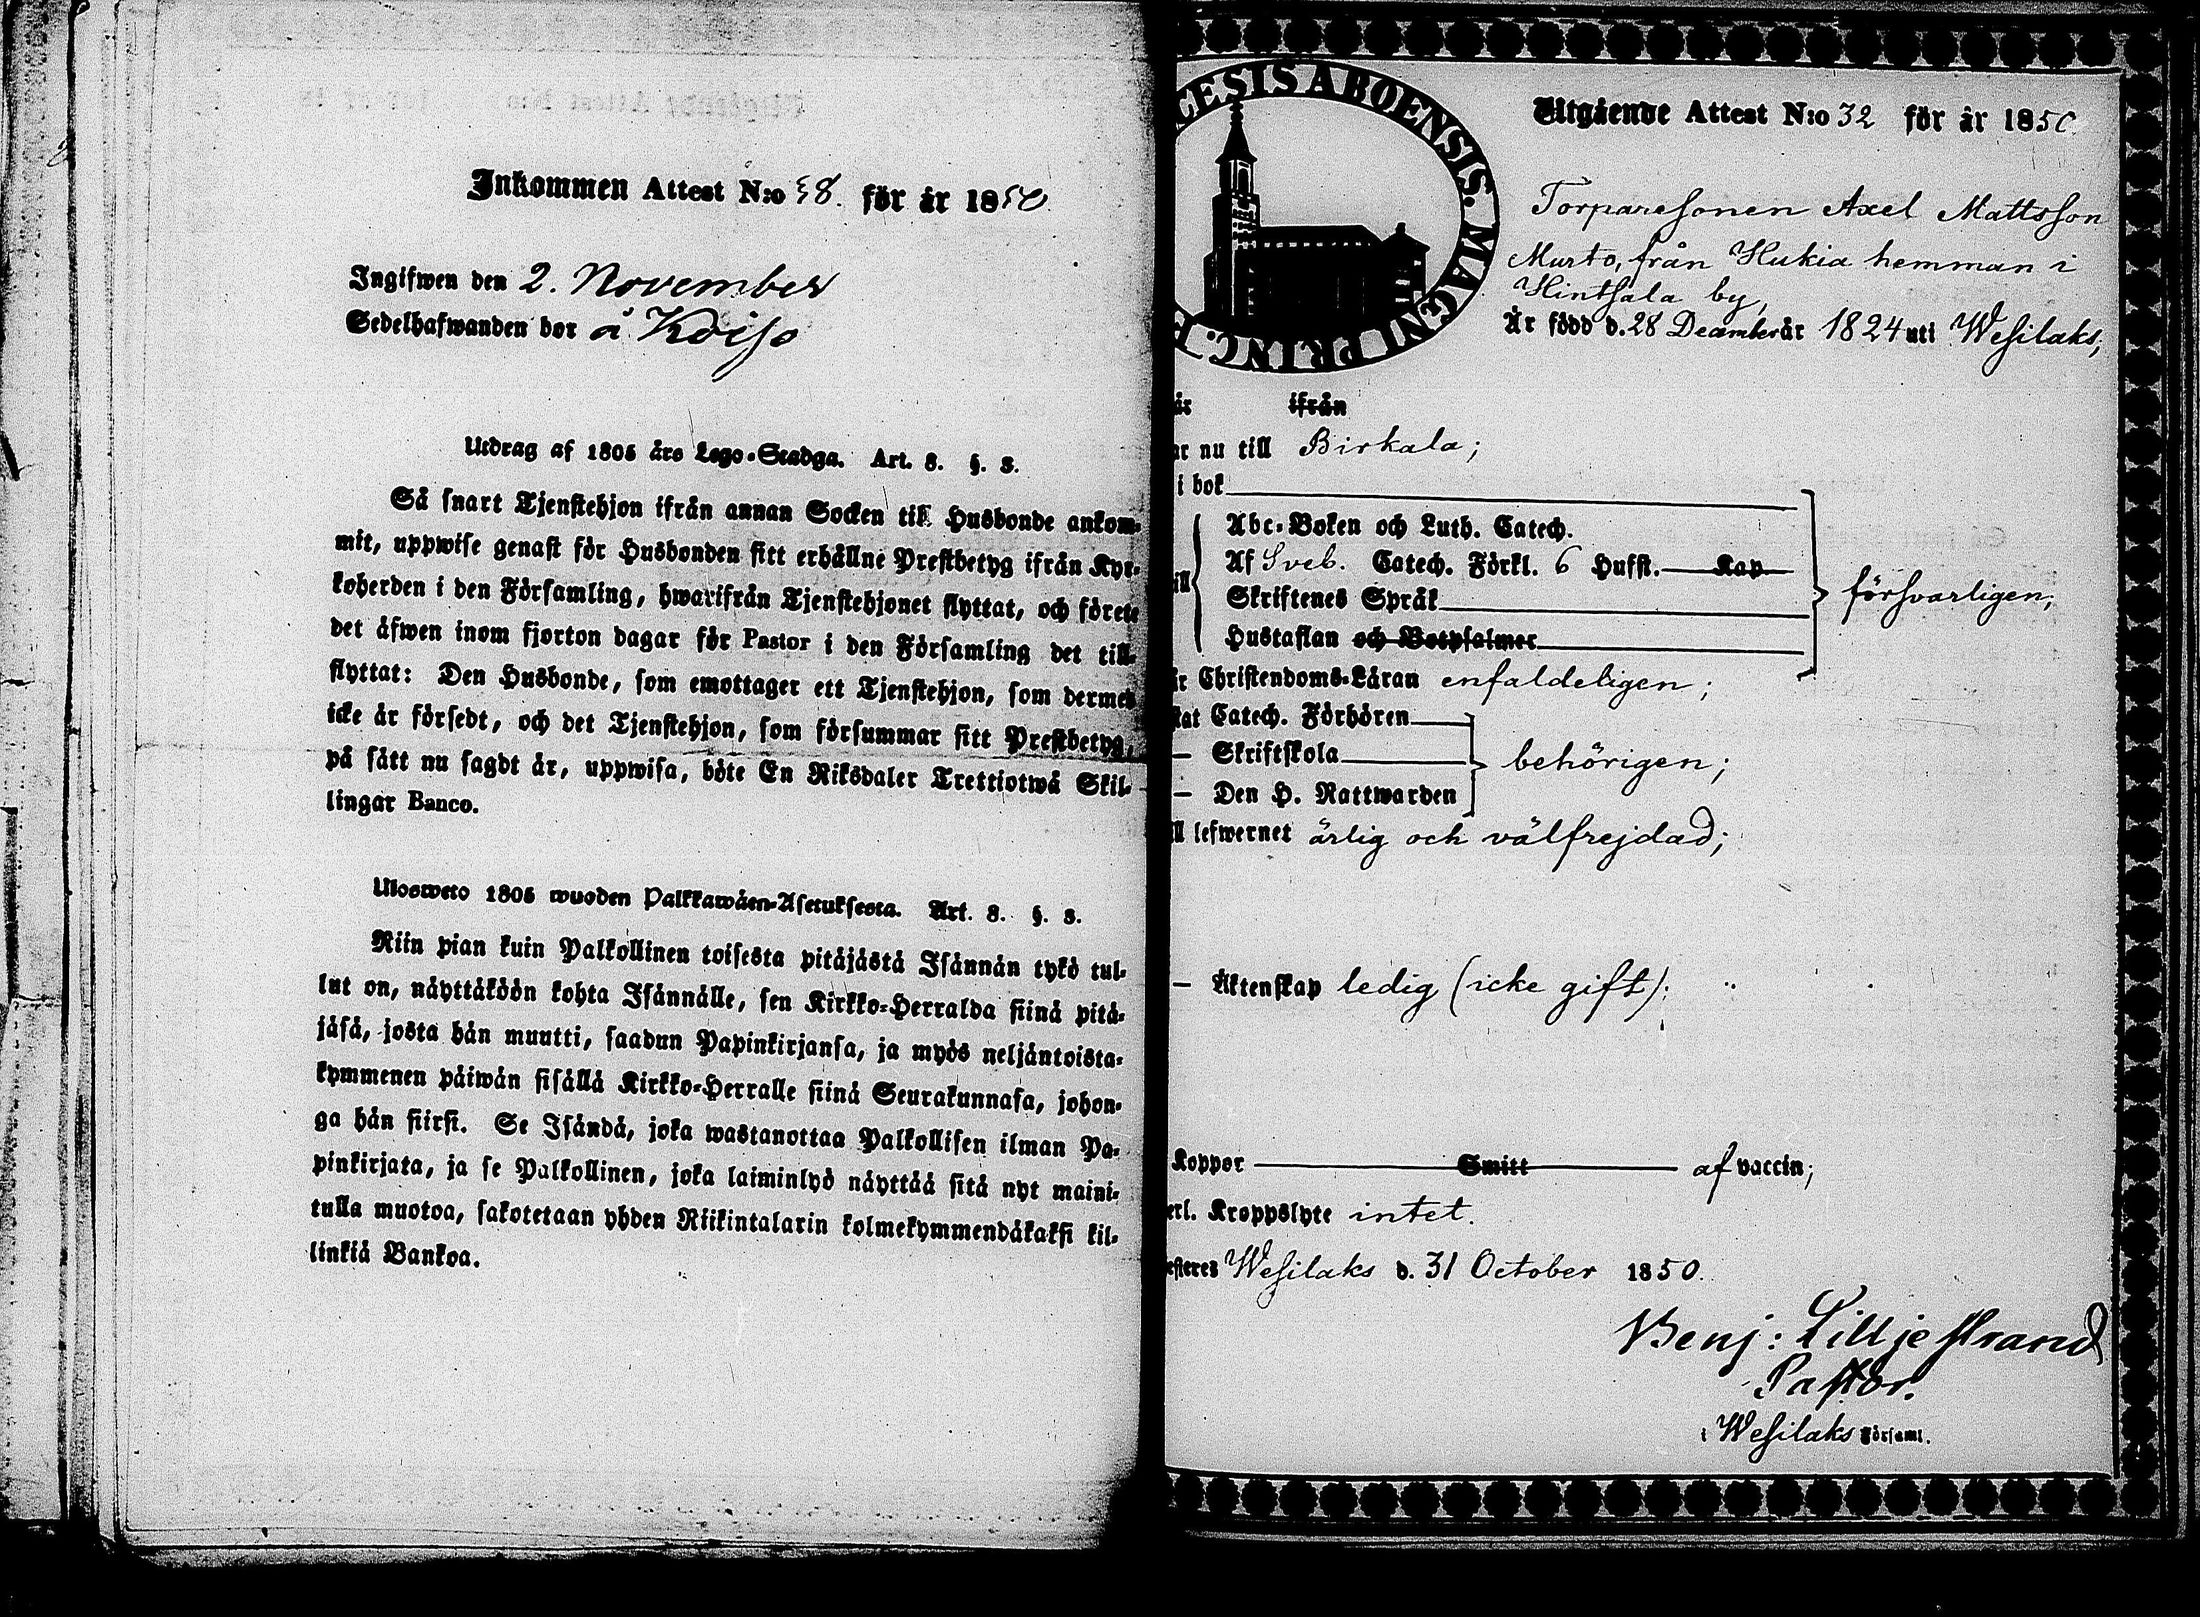 Inkommen Attest N:o 38. för år 1850
Ingifwen den 2. November
Sedelhafwanden bor å Koiso
Utdrag af 1805 års Lego-Stadga. Art. 8. §. 3.
Så snart Tjenstehjon ifrån annan Socken till Husbonde ankom-
mit, uppwise genast för Husbonden sitt erhållne Prestbetyg ifrån Kyr-
koherden i den Församling, hwarifrån Tjenstehjonet flyttat, och förete
det äfwen inom fjorton dagar för Pastor i den Församling det till-
flyttat: Den Husbonde, som emottager ett Tjenstehjon, som dermed
icke är försedt, och det Tjenstehjon, som försummar sitt Prestbetyg,
på sätt nu sagdt är, uppwisa, böte En Riksdaler Trettiotwå Skil-
lingar Banco.
Ulosweto 1805 wuoden Palkkawäen-Asetuksesta. Art. 8. §. 3.
Niin pian kuin Palkollinen toisesta pitäjästä Isännän tykö tul-
lut on, näyttäköön kohta Isännälle, sen Kirkko-Herralda siinä pitä-
jäsä, josta hän muutti, saadun Papinkirjansa, ja myös neljäntoista-
kymmenen päiwän sisällä Kirkko-Herralle siinä Seurakunnasa, johon-
ga hän siirsi. Se Isändä, joka wastanottaa Palkollisen ilman Pa-
pinkirjata, ja se Palkollinen, joka laiminlyö näyttää sitä nyt maini-
tulla muotoa, sakotetaan yhden Riikintalarin kolmekymmendäkaksi kil-
linkiä Bankoa.
CESIS ABOENSIS. MAGNI PRINC. F
Utgående Attest N:o 32 för år 1850
Torparesonen Axel Mattsson
Murto, från Hukia hemman i
Hintsala by,
Är född d. 28 December år 1824 uti Wesilaks;
är ifrån
ar nu till Birkala;
i bok
Abc-Boken och Luth. Catech.
Af Sveb. Catech. Förkl. 6 Hufst. Kap
till
Skriftenes Språk
försvarligen;
Hustaflan och Botpsalmer
är Christendoms-Läran enfaldeligen;
stat Catech. Förhören
— Skriftskola
behörigen;
— Den H. Nattwarden
ll lefwernet ärlig och välfrejdad;
— Äktenskap ledig (icke gift);
Koppor Smitt af vaccin;
erl. Kroppslyte intet.
esteres Wesilaks d. 31 October 1850.
Benj: Lilljestrand
Pastor.
i Wesilaks Församl.